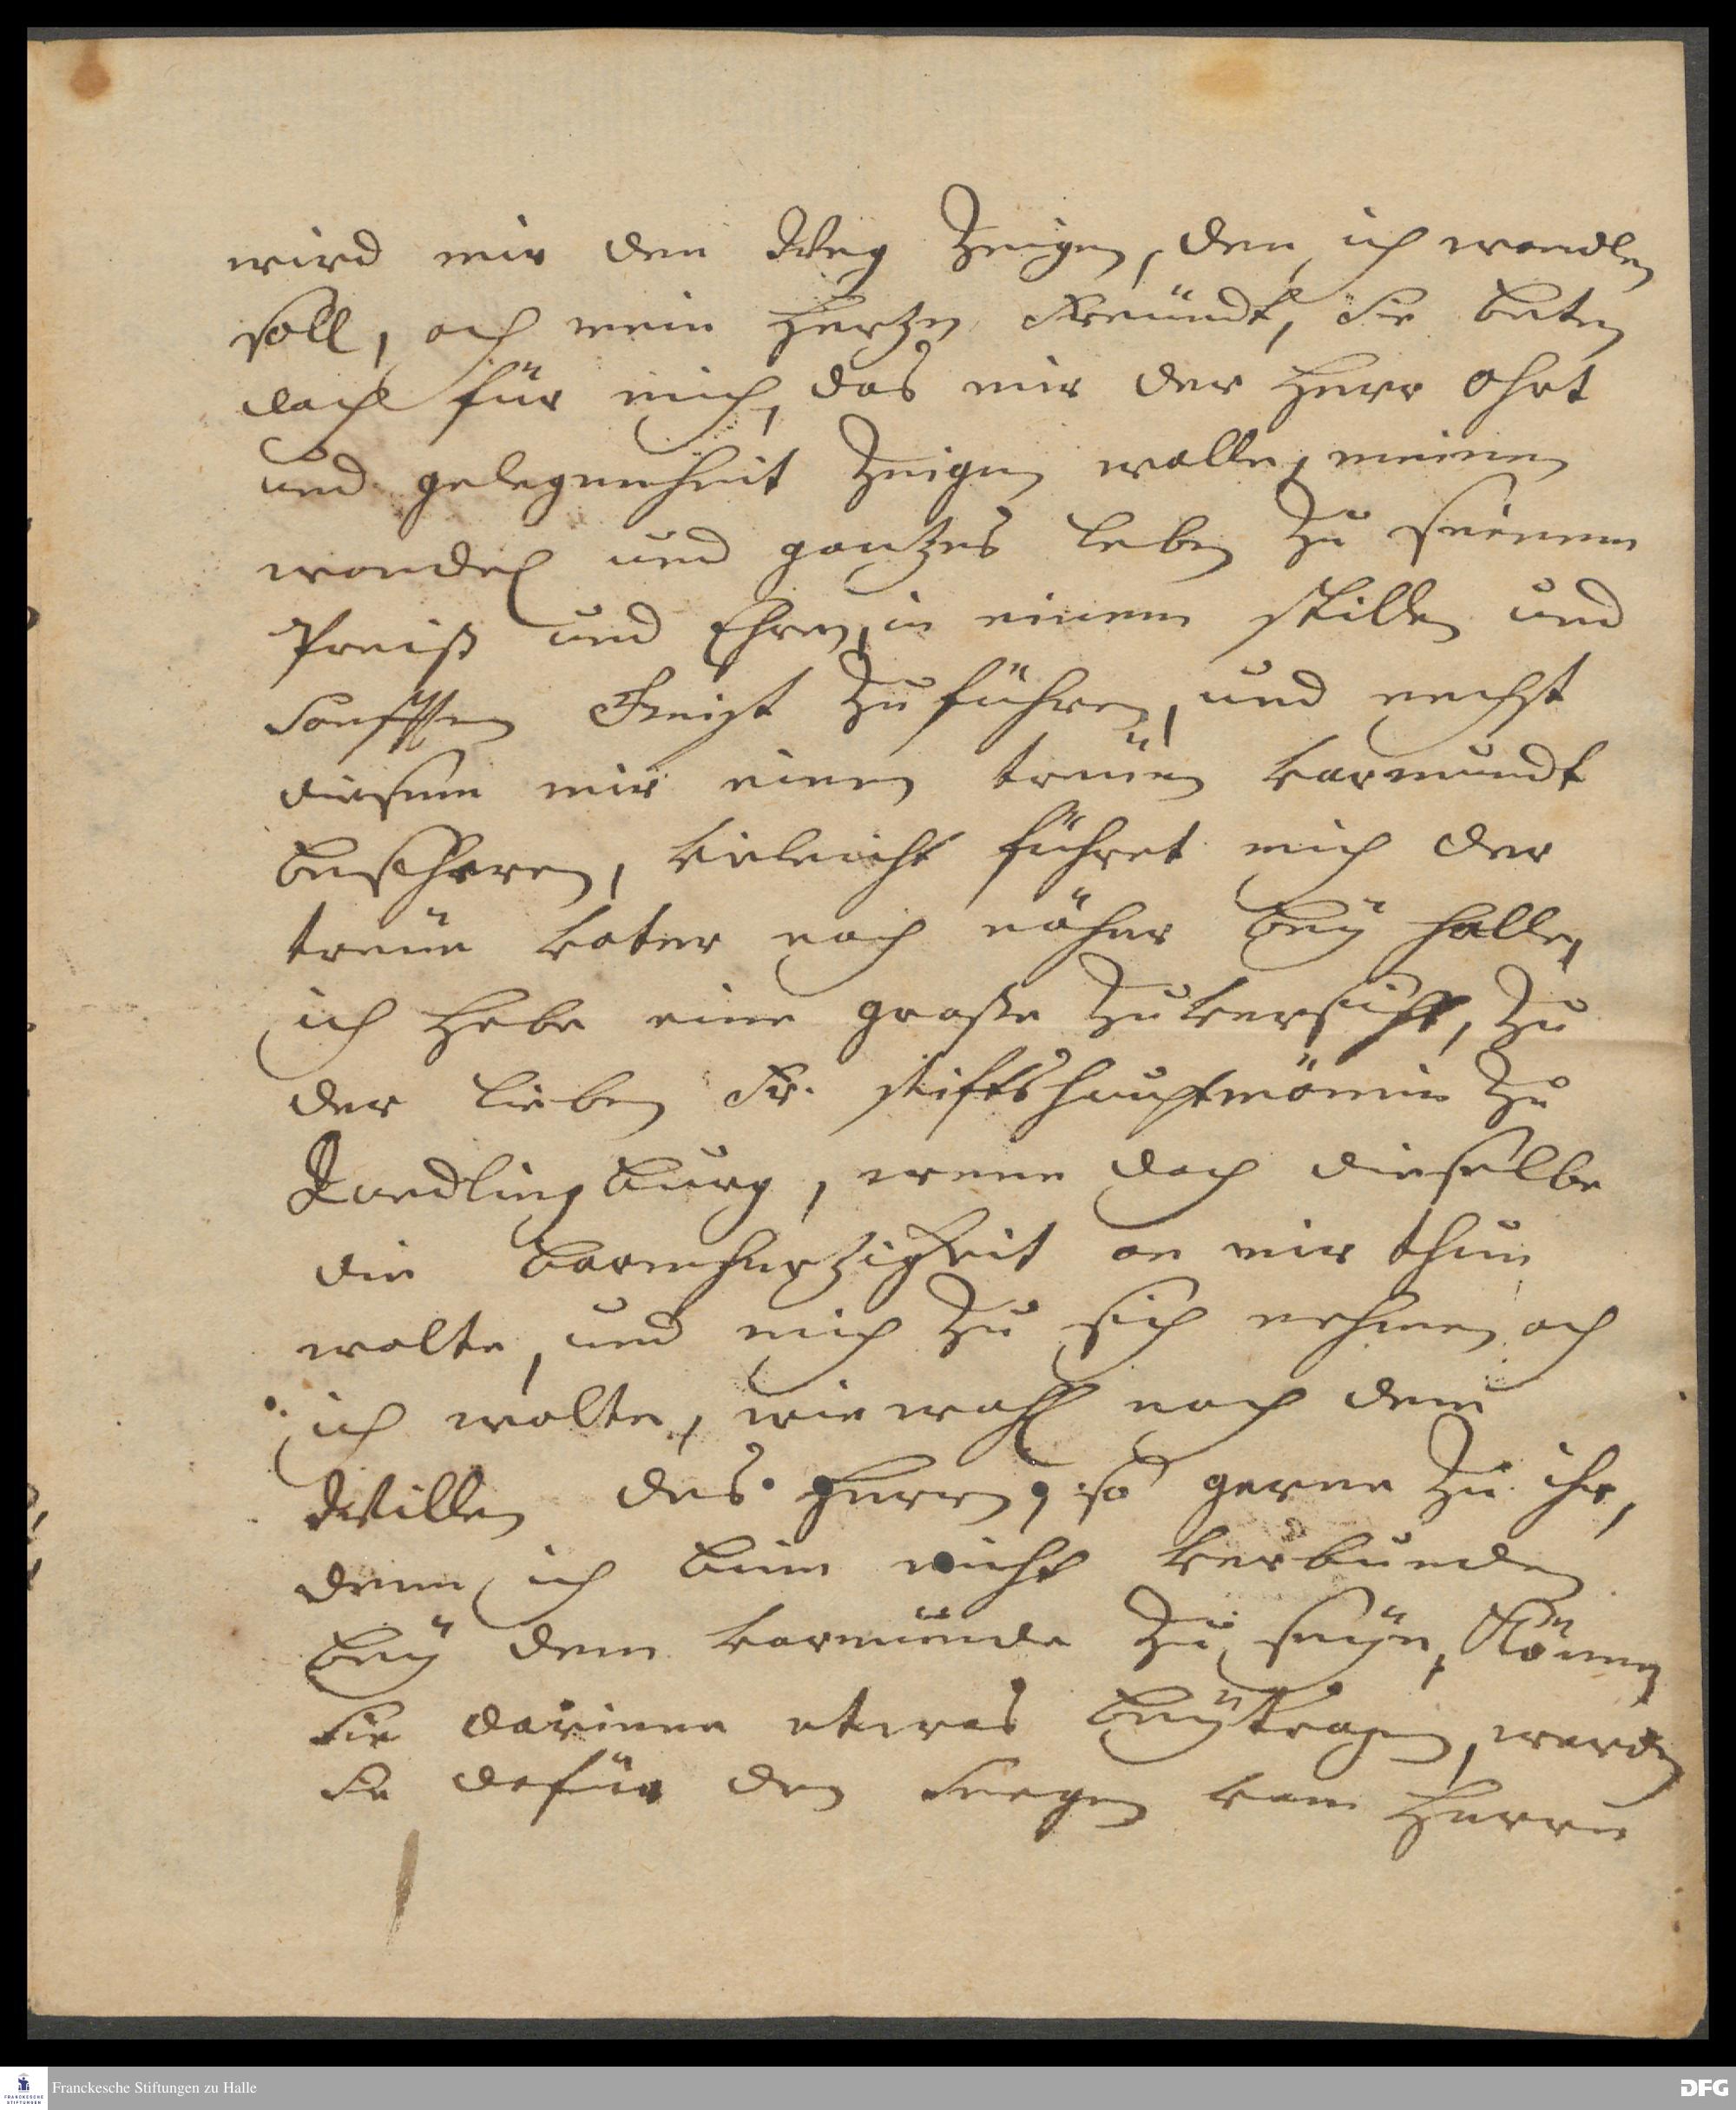 wird mir den Weg Zeigen, den ich wandlen
soll, ach mein Hertzen Freündt, Sie beten
doch für mich, das mir der Herr ohrt
und gelegenheit Zeigen wolle, meinen
wandel und gantzes leben Zu seinem
Preiß und Ehren, in einem stillen und
Sanfften Geist Zu führen, und nechst
diesem mir einen treüen vormundt
bescheren, vieleicht führet mich der
treüe vater noch näher beÿ Halle,
ich Habe eine große Zuversicht, Zu
der lieben Fr. stiftshauptmänin Zu
Quedlingburg, wenn doch dieselbe
die barmhertzigkeit an mir thun
wolte, und mich Zu sich nehmen, ach
ich wolte, wie wohl nach dem
Willen des Herren, so gerne Zu ihr,
denn ich bin nicht verbunden
beÿ dem vormünde Zu seÿn, Können
Sie darinne etwas beÿtragen, werden
Sie dafür den Seegen vom Herren
Franckesche Stiftungen zu Halle
FRANCKESCHE
STIFTUNGEN
DFG